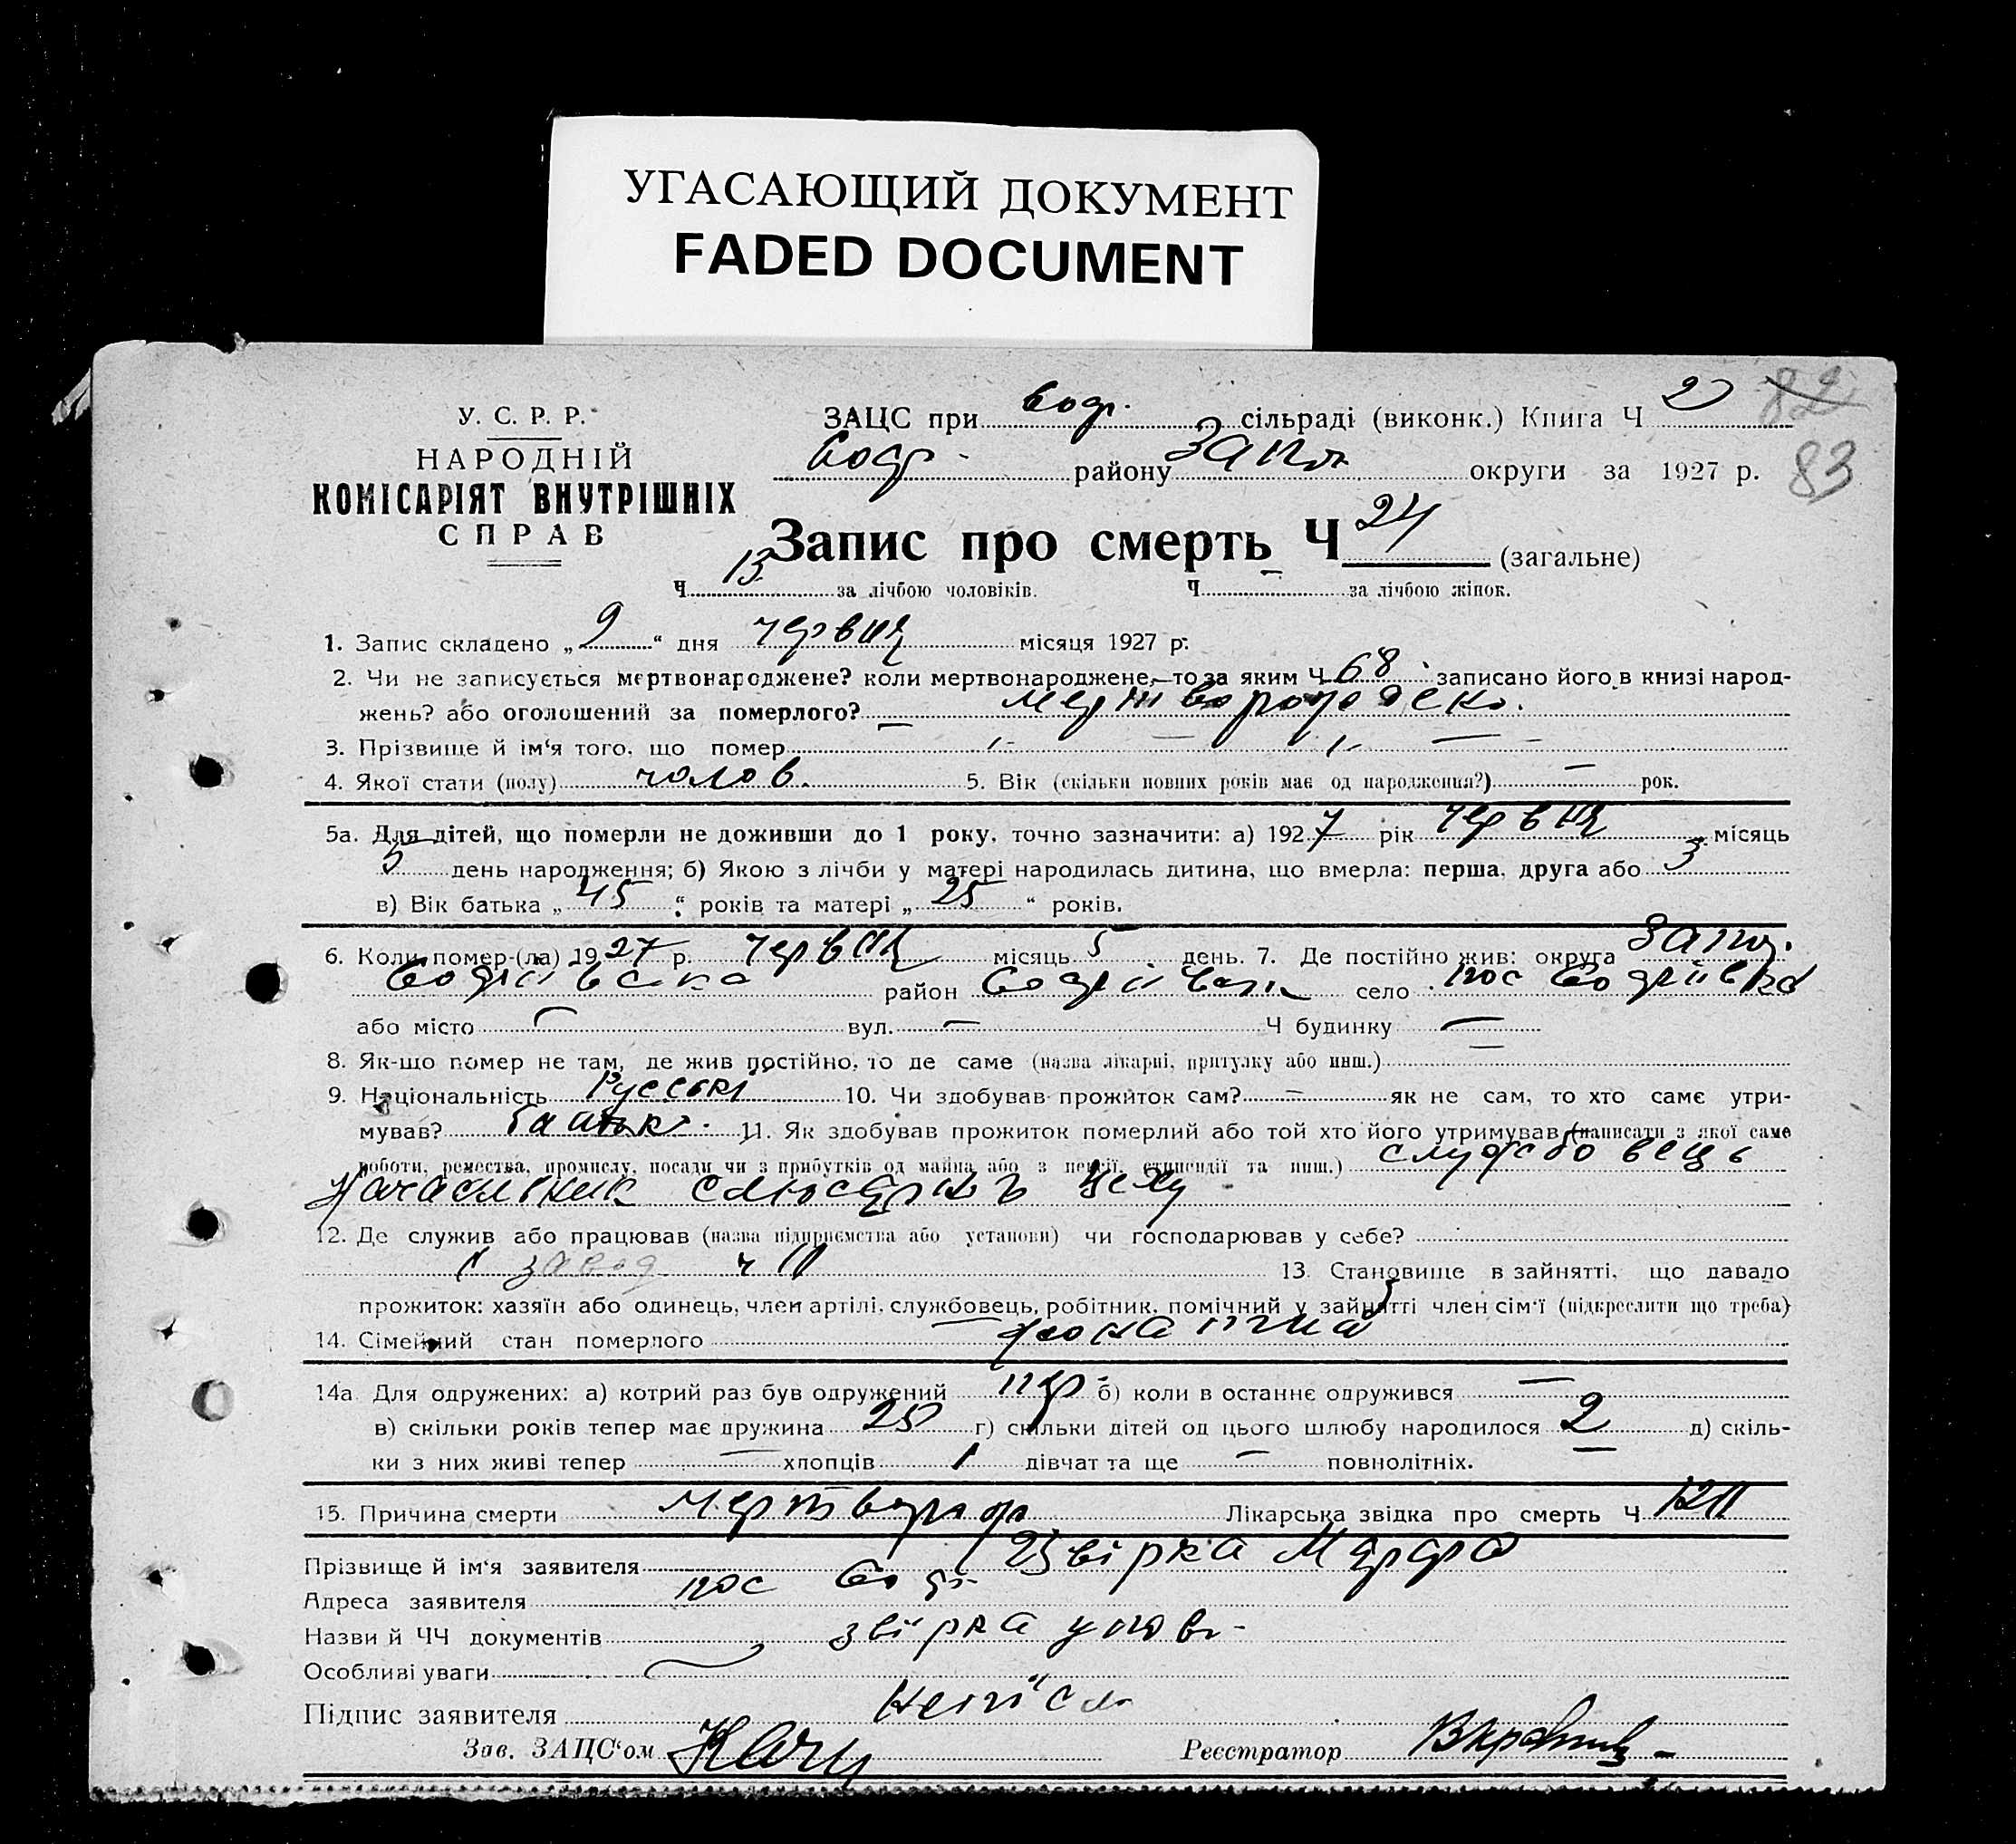 УГАСАЮЩИЙ ДОКУМЕНТ
FADED DOCUMENT
У. С. Р. Р.
НАРОДНІЙ
КОМІСАРІЯТ ВНУТРІШНІХ
СПРАВ
ЗАЦС при Софі. сільраді (виконк.) Книга Ч 2 82
Софі. району Запор. округи за 1927 р. 83
Запис про смерть Ч 24 (загальне)
Ч 13 за лічбою чоловіків. Ч — за лічбою жінок.
1. Запис складено „ 9 “ дня червця місяця 1927 р.
2. Чи не записується мертвонароджене? коли мертвонароджене, то за яким Ч 68 записано його в книзі народ-
жень? або оголошений за померлого? — мертвороджено.
3. Прізвище й ім‘я того, що помер
4. Якої стати (полу) чолов. 5. Вік (скільки повних років має од народження?) — рок.
5а. Для дітей, що померли не доживши до 1 року, точно зазначити: а) 1927 рік червця місяць
5 день народження; б) Якою з лічби у матері народилась дитина, що вмерла: перша, друга або 3
в) Вік батька „ 45 “ років та матері „ 25 “ років.
6. Коли помер-(ла) 1927 р. червця місяць 5 день. 7. Де постійно жив: округа Запор.
Софіївська район Софіївськ село пос Софіївка
або місто — вул. — Ч будинку —
8. Як-що помер не там, де жив постійно, то де саме (назва лікарні, притулку або инш.) —
9. Національність Руські 10. Чи здобував прожиток сам? — як не сам, то хто саме утри-
мував? батько. 11. Як здобував прожиток померлий або той хто його утримував (написати з якої саме
роботи, ремества, промислу, посади чи з прибутків од майна або з пенсії, стипендії та инш.) службовець
Начальник слюсарн цеху
12. Де служив або працював (назва підприємства або установи) чи господарював у себе?
завод ч 11 13. Становище в зайнятті, що давало
прожиток: хазяїн або одинець, член артілі, службовець, робітник, помічний у зайнятті член сім‘ї (підкреслити що треба)
14. Сімейний стан померлого
14а Для одружених: а) котрий раз був одружений пер б) коли в останнє одружився —
в) скільки років тепер має дружина 25 г) скільки дітей од цього шлюбу народилося 2 д) скіль-
ки з них живі тепер — хлопців 1 дівчат та ще — повнолітніх.
15. Причина смерти мертвород Лікарська звідка про смерть Ч
Прізвище й ім‘я заявителя Звірка
Адреса заявителя пос Соф.
Назви й ЧЧ документів звірка
Особливі уваги
Підпис заявителя неписм
Зав. ЗАЦС‘ом Реєстратор